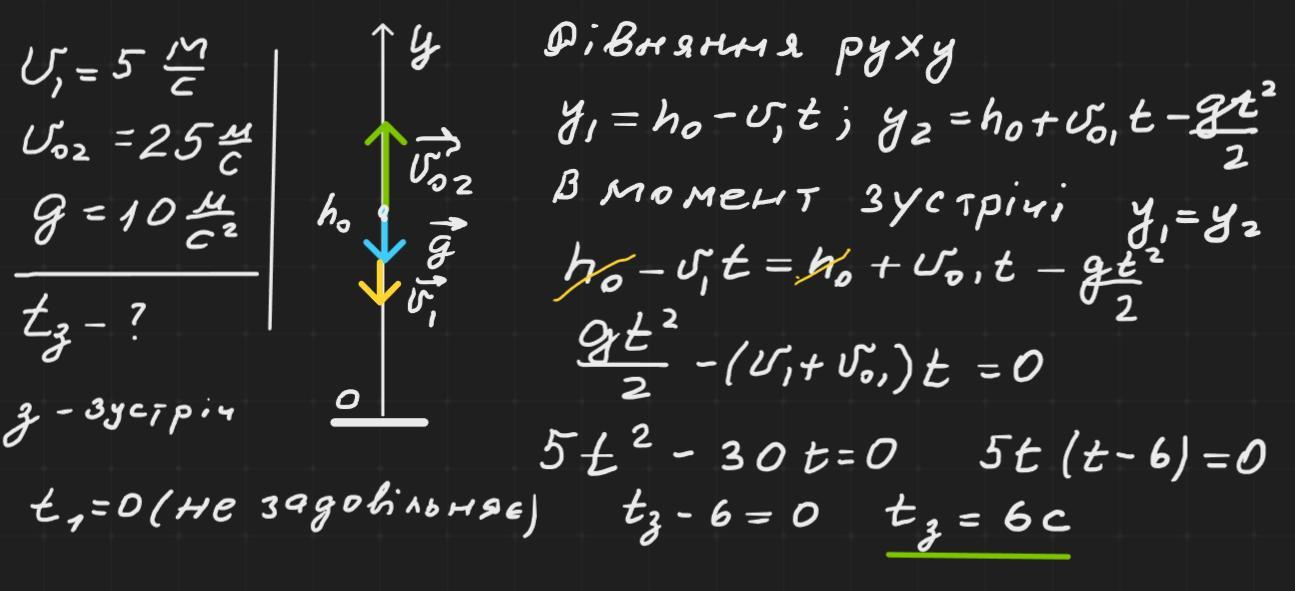 υ₁ = 5 м/с
υ₀₂ = 25 м/с
g = 10 м/с²
t_з - ?
з - зустріч
y
υ₀₂
h₀
g
υ₁
0
Рівняння руху
y₁ = h₀ - υ₁t ; y₂ = h₀ + υ₀₁t - gt²/2
В момент зустрічі y₁ = y₂
h₀ - υ₁t = h₀ + υ₀₁t - gt²/2
gt²/2 - (υ₁ + υ₀₁)t = 0
5t² - 30t = 0 5t(t - 6) = 0
t₁ = 0 (не задовільняє) t_з - 6 = 0 t_з = 6 с